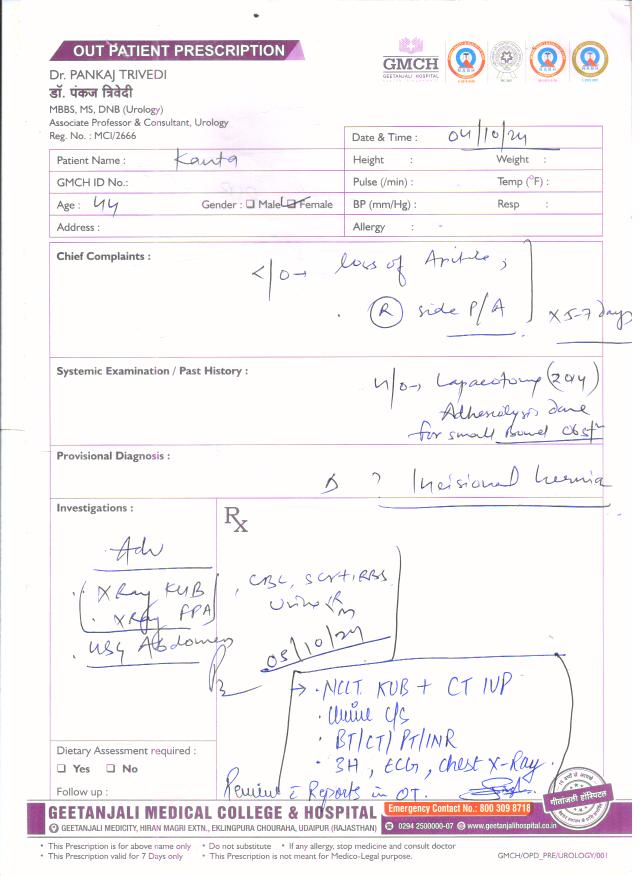 OUT PATIENT PRESCRIPTION
GMCH
GEETANJALI HOSPITAL
Dr. PANKAJ TRIVEDI
डॉ. पंकज त्रिवेदी
MBBS, MS, DNB (Urology)
Associate Professor & Consultant, Urology
Reg. No. : MCI/2666
Date & Time : 04/10/24
Patient Name : Kanta
Height : Weight :
GMCH ID No.:
Pulse (/min) : Temp (°F) :
Age : 44 Gender : ☐ Male ☐ Female
BP (mm/Hg) : Resp :
Address :
Allergy : -
Chief Complaints :
C/O→ loss of
(R) side P/A × 5-7 days
Systemic Examination / Past History :
H/O→ (2014)
Adhesiolysis done
for small Bowel Obstn
Provisional Diagnosis :
? Incisional hernia
Investigations :
Rx
Adv
X Ray KUB , CBC, S Cr+, RBS
X Ray FPA Urine R/M
USG Abdomen
05/10/24
→ · NCCT KUB + CT IVP
· Urine C/S
· BT/CT/PT/INR
· 3H, ECG, Chest X-Ray.
Dietary Assessment required :
☐ Yes ☐ No
Follow up :
Review c̄ Reports in OT.
GEETANJALI MEDICAL COLLEGE & HOSPITAL
Emergency Contact No.: 800 309 8718
GEETANJALI MEDICITY, HIRAN MAGRI EXTN., EKLINGPURA CHOURAHA, UDAIPUR (RAJASTHAN)
0294 2500000-07 www.geetanjalihospital.co.in
गीतांजली हॉस्पिटल
• This Prescription is for above name only • Do not substitute • If any allergy, stop medicine and consult doctor
• This Prescription valid for 7 Days only • This Prescription is not meant for Medico-Legal purpose.
GMCH/OPD_PRE/UROLOGY/001